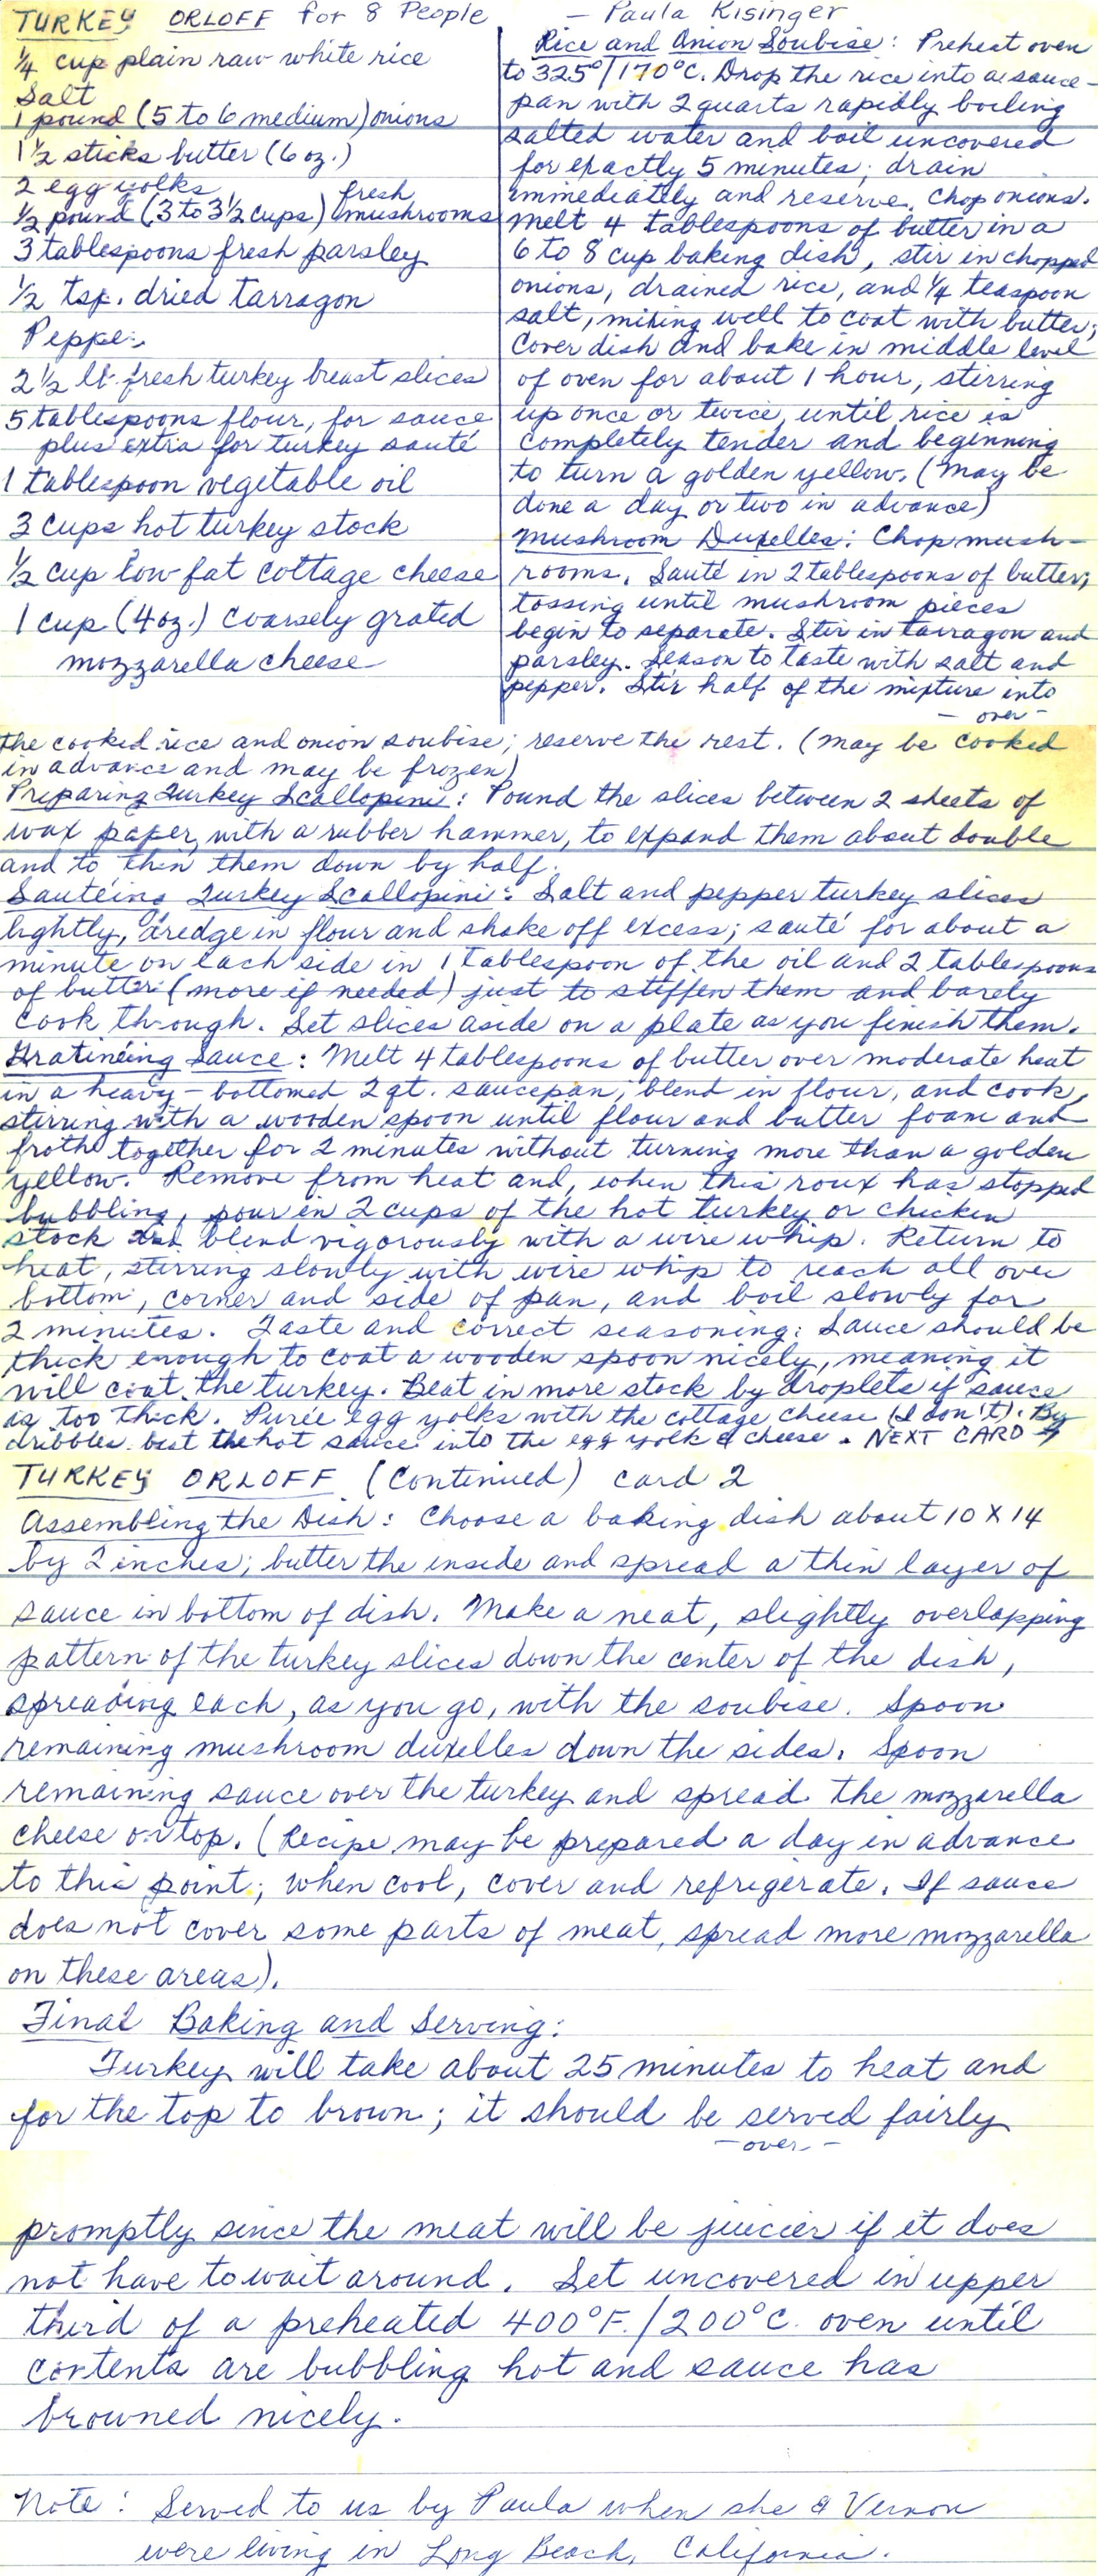 TURKEY ORLOFF for 8 People — Paula Kisinger
1/4 cup plain raw white rice
Salt
1 pound (5 to 6 medium) onions
1 1/2 sticks butter (6 oz.)
2 egg yolks
1/2 pound (3 to 3 1/2 cups) fresh mushrooms
3 tablespoons fresh parsley
1/2 tsp. dried tarragon
Pepper
2 1/2 lb fresh turkey breast slices
5 tablespoons flour, for sauce
plus extra for turkey sauté
1 tablespoon vegetable oil
3 cups hot turkey stock
1/2 cup low fat cottage cheese
1 cup (4 oz.) coarsely grated
mozzarella cheese
Rice and Onion Soubise: Preheat oven
to 325°/170°C. Drop the rice into a sauce-
pan with 2 quarts rapidly boiling
salted water and boil uncovered
for exactly 5 minutes; drain
immediately and reserve. Chop onions.
Melt 4 tablespoons of butter in a
6 to 8 cup baking dish, stir in chopped
onions, drained rice, and 1/4 teaspoon
salt, mixing well to coat with butter;
Cover dish and bake in middle level
of oven for about 1 hour, stirring
up once or twice, until rice is
completely tender and beginning
to turn a golden yellow. (May be
done a day or two in advance)
Mushroom Duxelles: Chop mush-
rooms. Sauté in 2 tablespoons of butter;
tossing until mushroom pieces
begin to separate. Stir in tarragon and
parsley. Season to taste with salt and
pepper. Stir half of the mixture into
- over -
the cooked rice and onion soubise; reserve the rest. (May be cooked
in advance and may be frozen)
Preparing Turkey Scallopini: Pound the slices between 2 sheets of
wax paper, with a rubber hammer, to expand them about double
and to thin them down by half.
Sautéing Turkey Scallopini: Salt and pepper turkey slices
lightly, dredge in flour and shake off excess; sauté for about a
minute on each side in 1 tablespoon of the oil and 2 tablespoons
of butter (more if needed) just to stiffen them and barely
cook through. Set slices aside on a plate as you finish them.
Gratinéing Sauce: Melt 4 tablespoons of butter over moderate heat
in a heavy-bottomed 2 qt. saucepan, blend in flour, and cook,
stirring with a wooden spoon until flour and butter foam and
froth together for 2 minutes without turning more than a golden
yellow. Remove from heat and, when this roux has stopped
bubbling, pour in 2 cups of the hot turkey or chicken
stock and blend vigorously with a wire whip. Return to
heat, stirring slowly with wire whip to reach all over
bottom, corner and side of pan, and boil slowly for
2 minutes. Taste and correct seasoning: Sauce should be
thick enough to coat a wooden spoon nicely, meaning it
will coat the turkey. Beat in more stock by droplets if sauce
is too thick. Purée egg yolks with the cottage cheese (I don't). By
dribbles beat the hot sauce into the egg yolk & cheese. NEXT CARD
TURKEY ORLOFF (Continued) Card 2
Assembling the Dish: Choose a baking dish about 10 X 14
by 2 inches; butter the inside and spread a thin layer of
sauce in bottom of dish. Make a neat, slightly overlapping
pattern of the turkey slices down the center of the dish,
spreading each, as you go, with the soubise. Spoon
remaining mushroom duxelles down the sides. Spoon
remaining sauce over the turkey and spread the mozzarella
cheese on top. (Recipe may be prepared a day in advance
to this point; when cool, cover and refrigerate. If sauce
does not cover some parts of meat, spread more mozzarella
on these areas).
Final Baking and Serving:
Turkey will take about 25 minutes to heat and
for the top to brown; it should be served fairly
- over -
promptly since the meat will be juicier if it does
not have to wait around. Set uncovered in upper
third of a preheated 400°F./200°C. oven until
contents are bubbling hot and sauce has
browned nicely.
Note: Served to us by Paula when she & Vernon
were living in Long Beach, California.